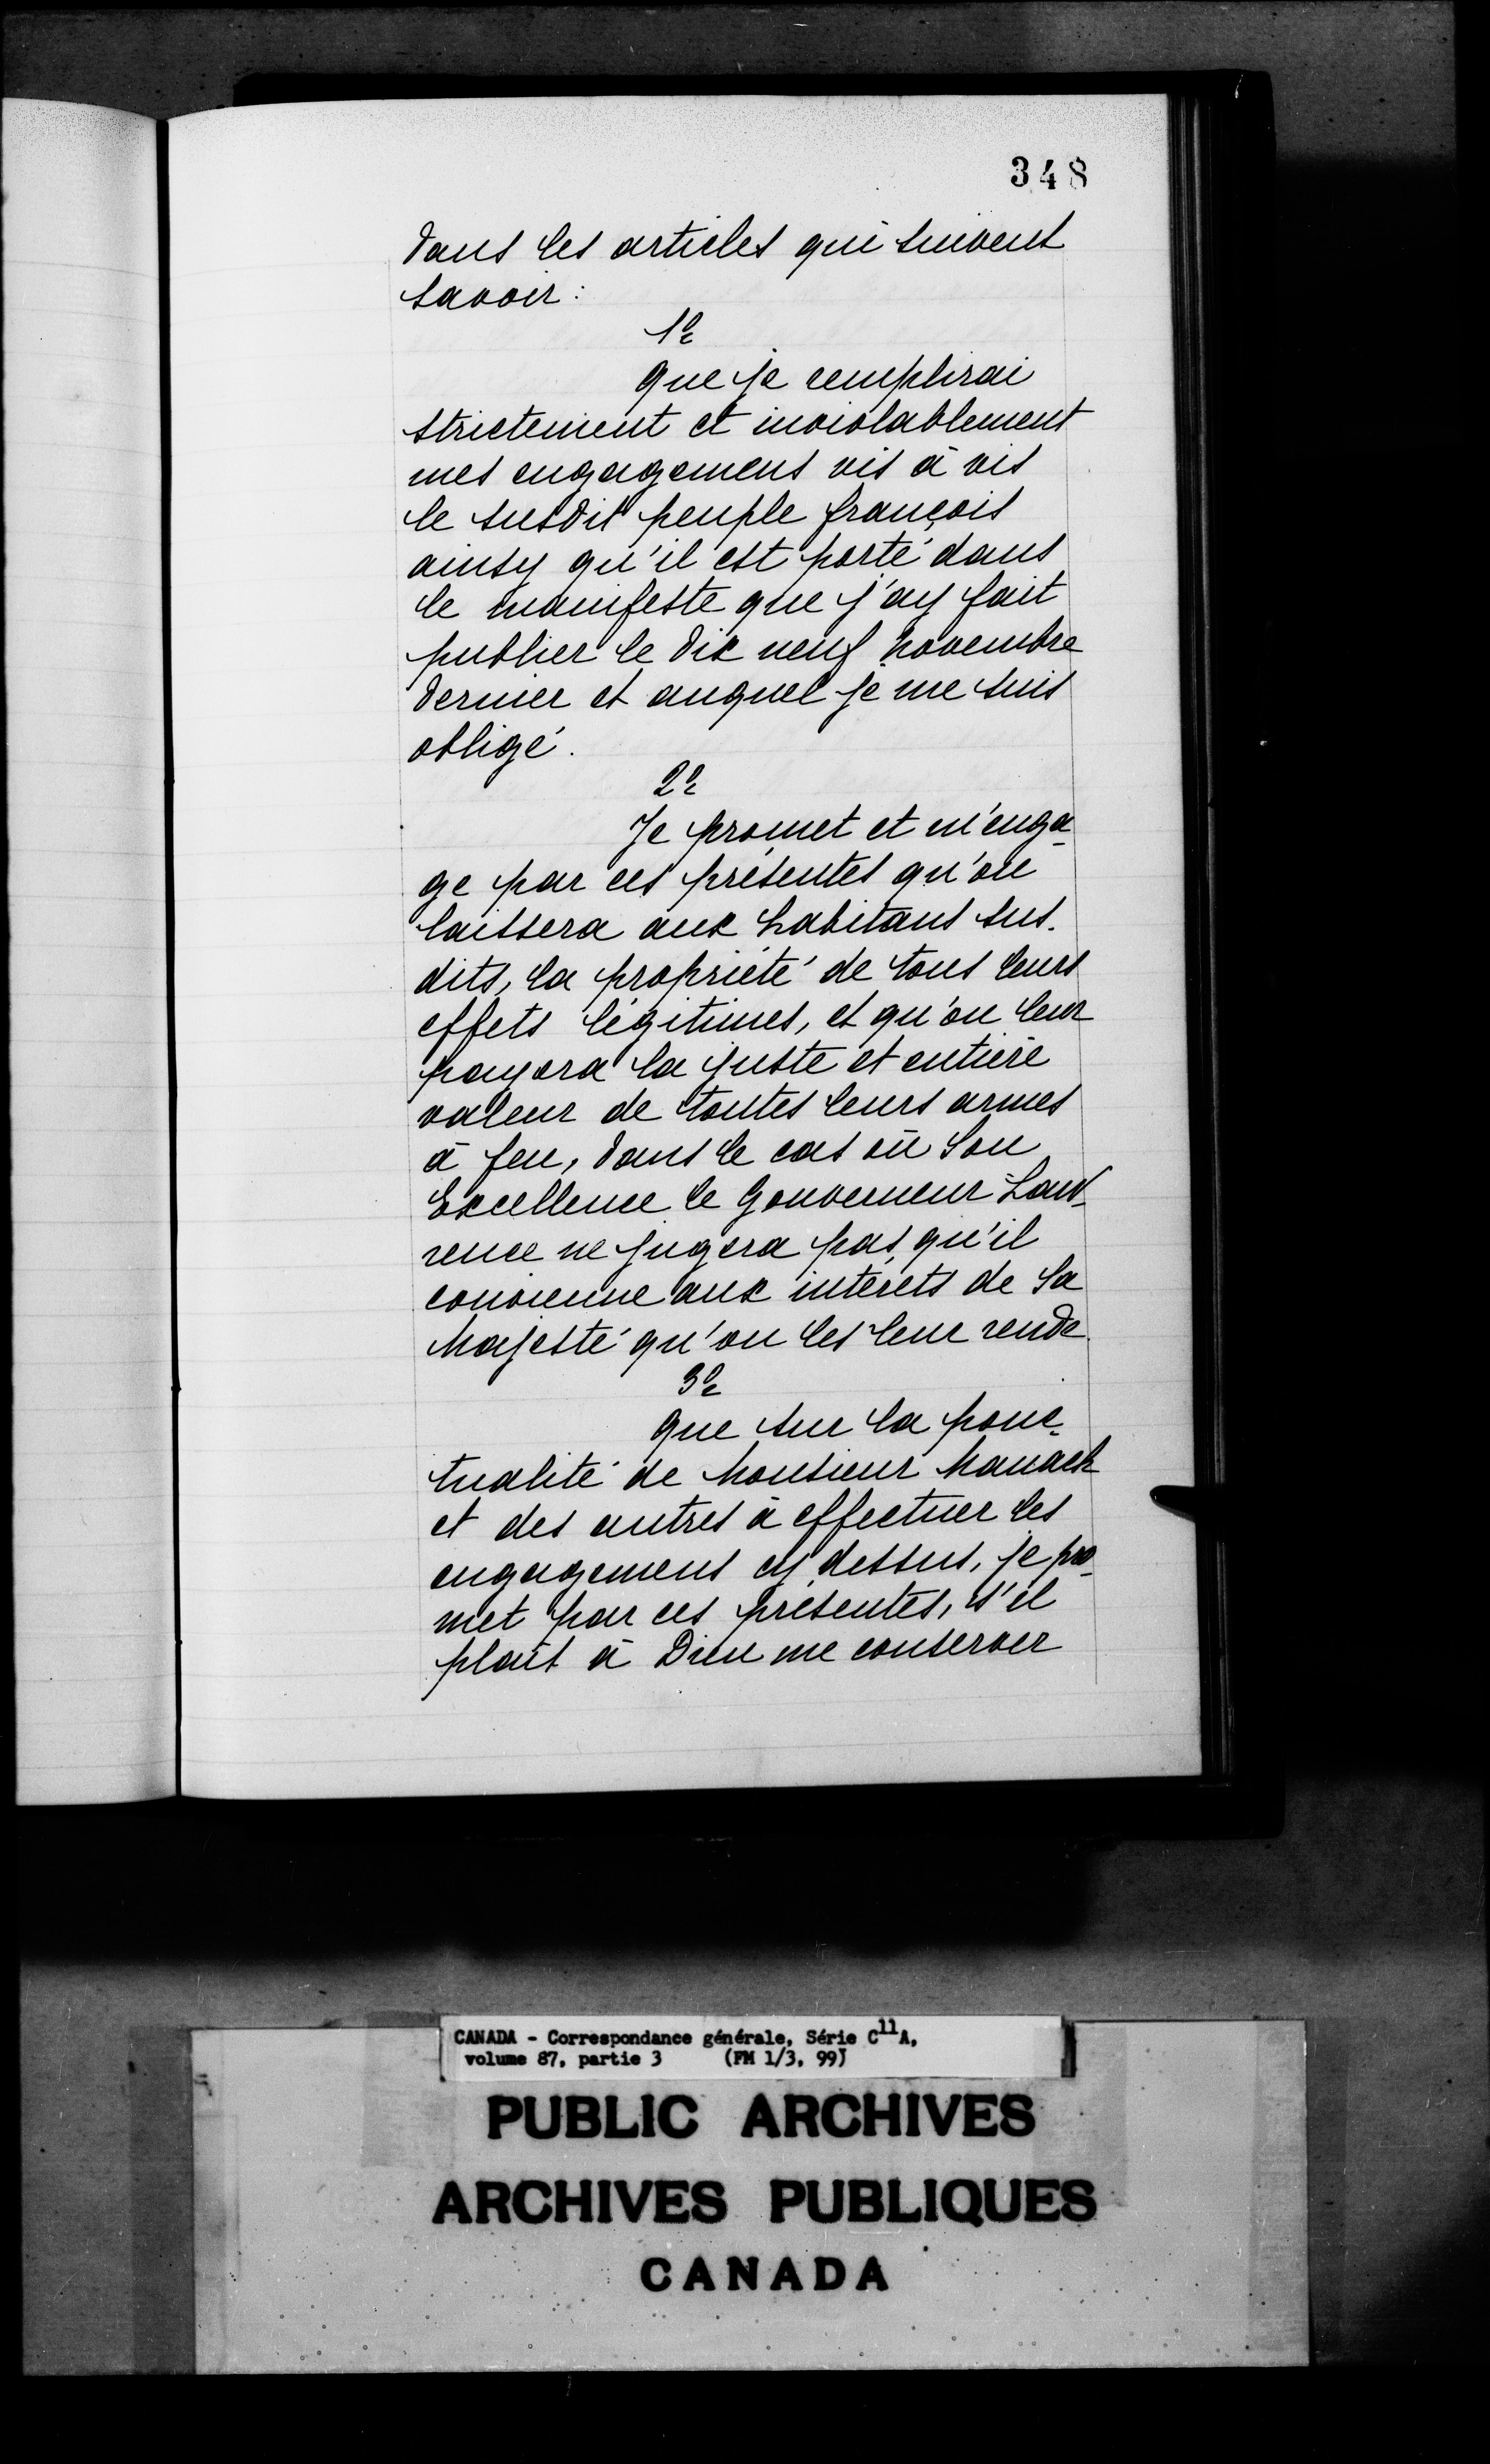 348
dans les articles qui suivent
savoir :
1º
que je remplirai
strictement et inviolablement
mes engagemens vis à vis
le susdit peuple françois
ainsy qu'il est porté dans
le manifeste que j'ay fait
publier le dix neuf novembre
dernier et auquel je me suis
obligé.
2º
Je promet et m'enga-
ge par ces présentes qu'on
laissera aux habitans sus-
dits, la propriété de tous leurs
effets légitimes, et qu'on leur
payera la juste et entière
valeur de toutes leurs armes
à feu, dans le cas où Son
Excellence le Gouverneur Law-
rence ne jugera pas qu'il
convienne aux intérets de Sa
Majesté qu'on les leur rende.
3º
que sur la ponc-
tualité de Monsieur Manack
et des autres à effectuer les
engagemens cy dessus, je pro-
met par ces présentes, s'il
plait à Dieu me conserver
CANADA - Correspondance générale, Série C11A,
volume 87, partie 3 (FM 1/3, 99)
PUBLIC ARCHIVES
ARCHIVES PUBLIQUES
CANADA